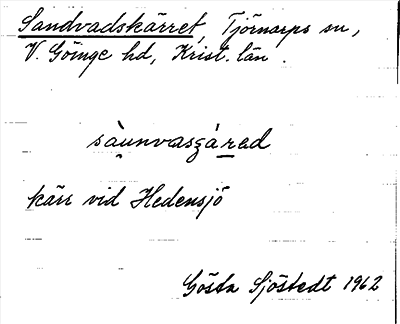 Sandvadskärret, Tjörnarps sn,
V. Göinge hd, Krist. län.
sàunvasʒàrad
kärr vid Hedensjö
Gösta Sjöstedt 1962